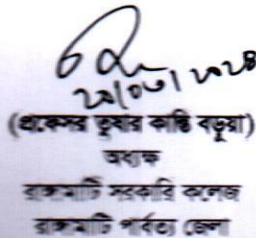 ২৯/০৩/২০২৪
(প্রফেসর তুষার কান্তি বড়ুয়া)
অধ্যক্ষ
রাঙ্গামাটি সরকারি কলেজ
রাঙ্গামাটি পার্বত্য জেলা